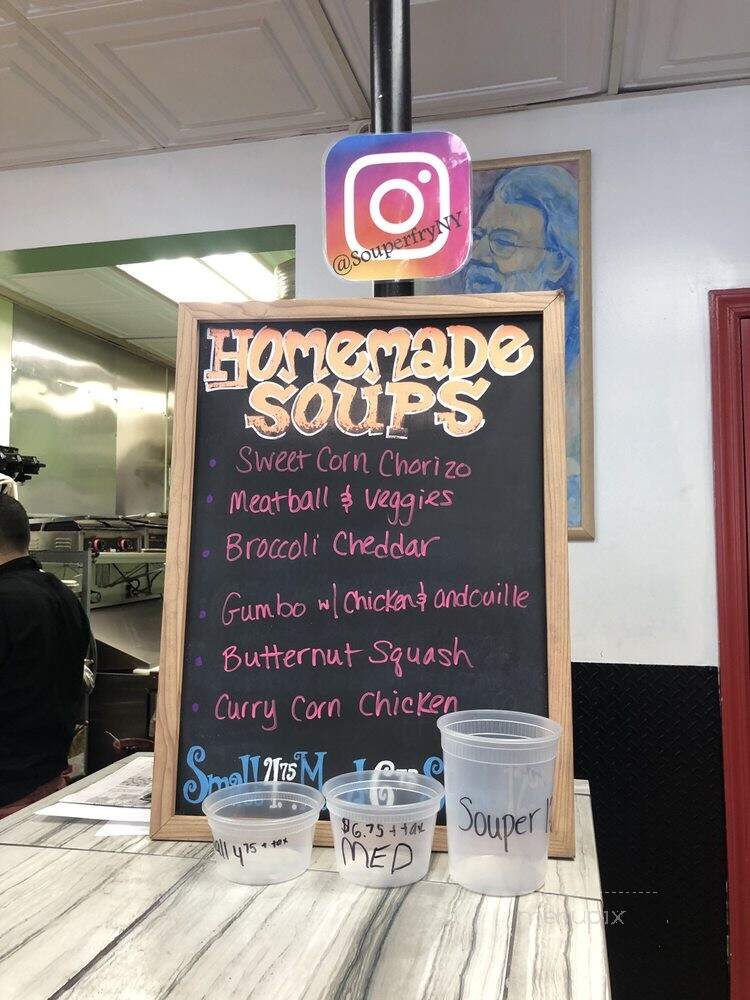 @SouperfryNY
HOMEMADE
SOUPS
• Sweet Corn Chorizo
• Meatball & Veggies
• Broccoli Cheddar
• Gumbo w/ Chicken & andouille
• Butternut Squash
• Curry Corn Chicken
Small 4.75 M
4.75 + tax
$6.75 + tax
MED
Souper
menupix